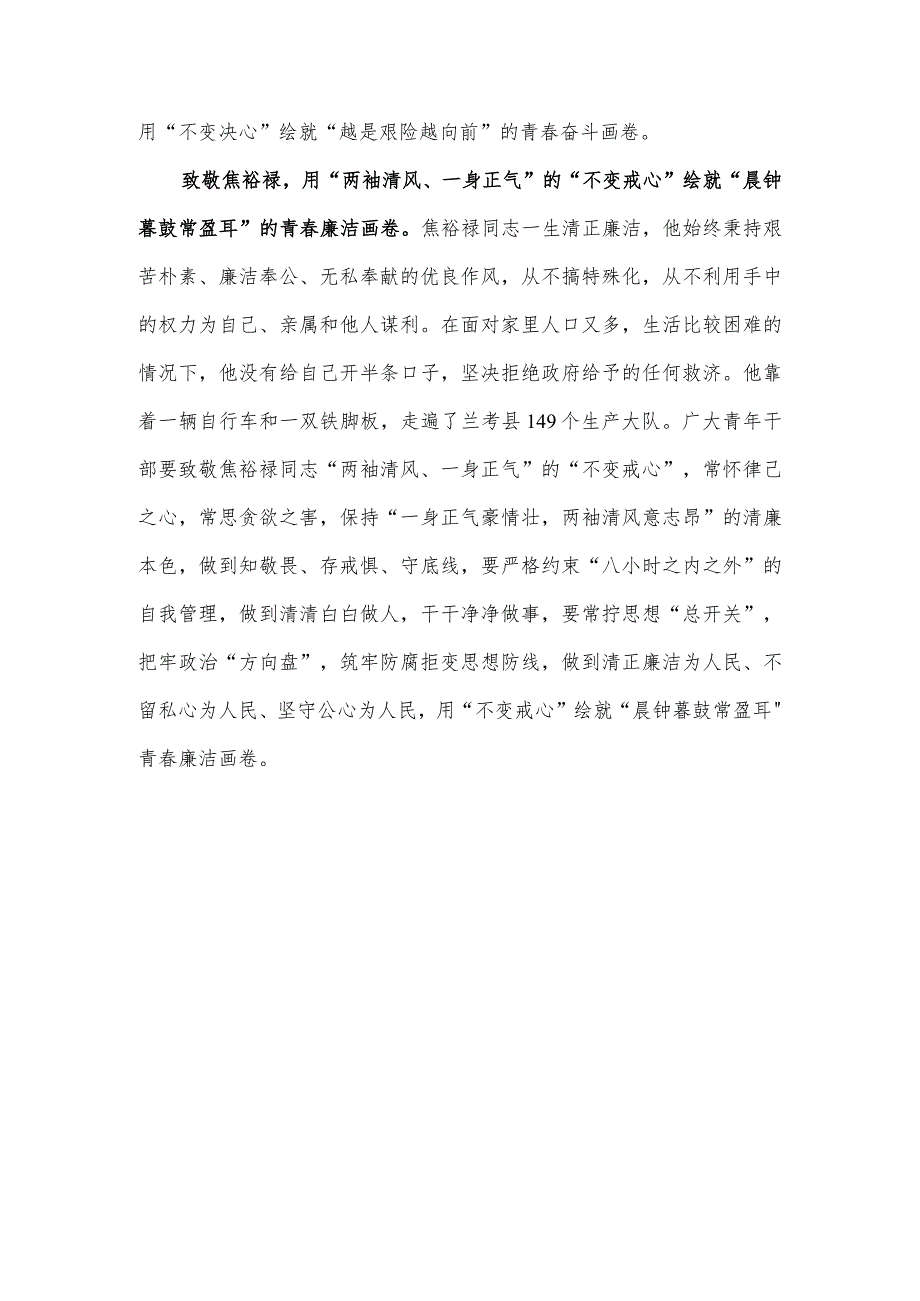 用“不变决心”绘就“越是艰险越向前”的青春奋斗画卷。
致敬焦裕禄，用“两袖清风、一身正气”的“不变戒心”绘就“晨钟
暮鼓常盈耳”的青春廉洁画卷。焦裕禄同志一生清正廉洁，他始终秉持艰
苦朴素、廉洁奉公、无私奉献的优良作风，从不搞特殊化，从不利用手中
的权力为自己、亲属和他人谋利。在面对家里人口又多，生活比较困难的
情况下，他没有给自己开半条口子，坚决拒绝政府给予的任何救济。他靠
着一辆自行车和一双铁脚板，走遍了兰考县 149 个生产大队。广大青年干
部要致敬焦裕禄同志“两袖清风、一身正气”的“不变戒心”，常怀律己
之心，常思贪欲之害，保持“一身正气豪情壮，两袖清风意志昂”的清廉
本色，做到知敬畏、存戒惧、守底线，要严格约束“八小时之内之外”的
自我管理，做到清清白白做人，干干净净做事，要常拧思想“总开关”，
把牢政治“方向盘”，筑牢防腐拒变思想防线，做到清正廉洁为人民、不
留私心为人民、坚守公心为人民，用“不变戒心”绘就“晨钟暮鼓常盈耳"
青春廉洁画卷。